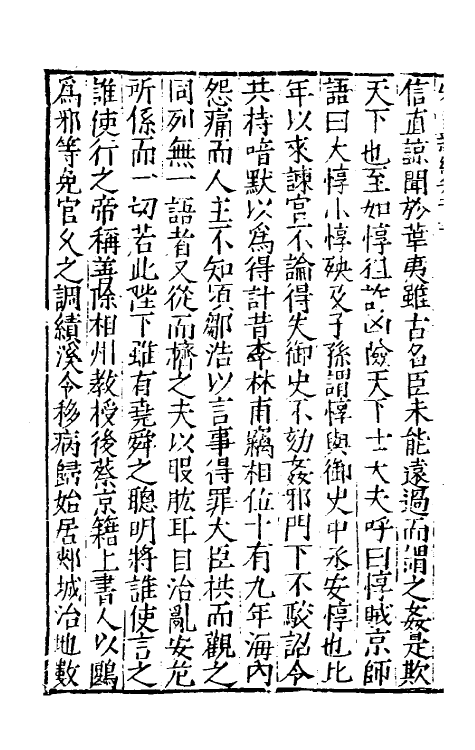 信直諒聞於華夷雖古名臣未能遠過而謂之姦是欺
天下也至如惇狙詐凶險天下士大夫呼曰惇賊京師
語曰大惇小惇殃及子孫謂惇與御史中丞安惇也比
年以求諫官不論得失御史不劾姦邪門下不駮詔令
共持喑默以爲得計昔李林甫竊相位十有九年海內
怨痛而人主不知頃鄒浩以言事得罪大臣拱而觀之
同列無一語者又從而擠之夫以股肱耳目治亂安危
所係而一切若此陛下雖有堯舜之聰明將誰使言之
誰使行之帝稱善除相州教授後蔡京籍上書人以鶠
爲邪等免官久之調績溪令移病歸始居郟城治地數